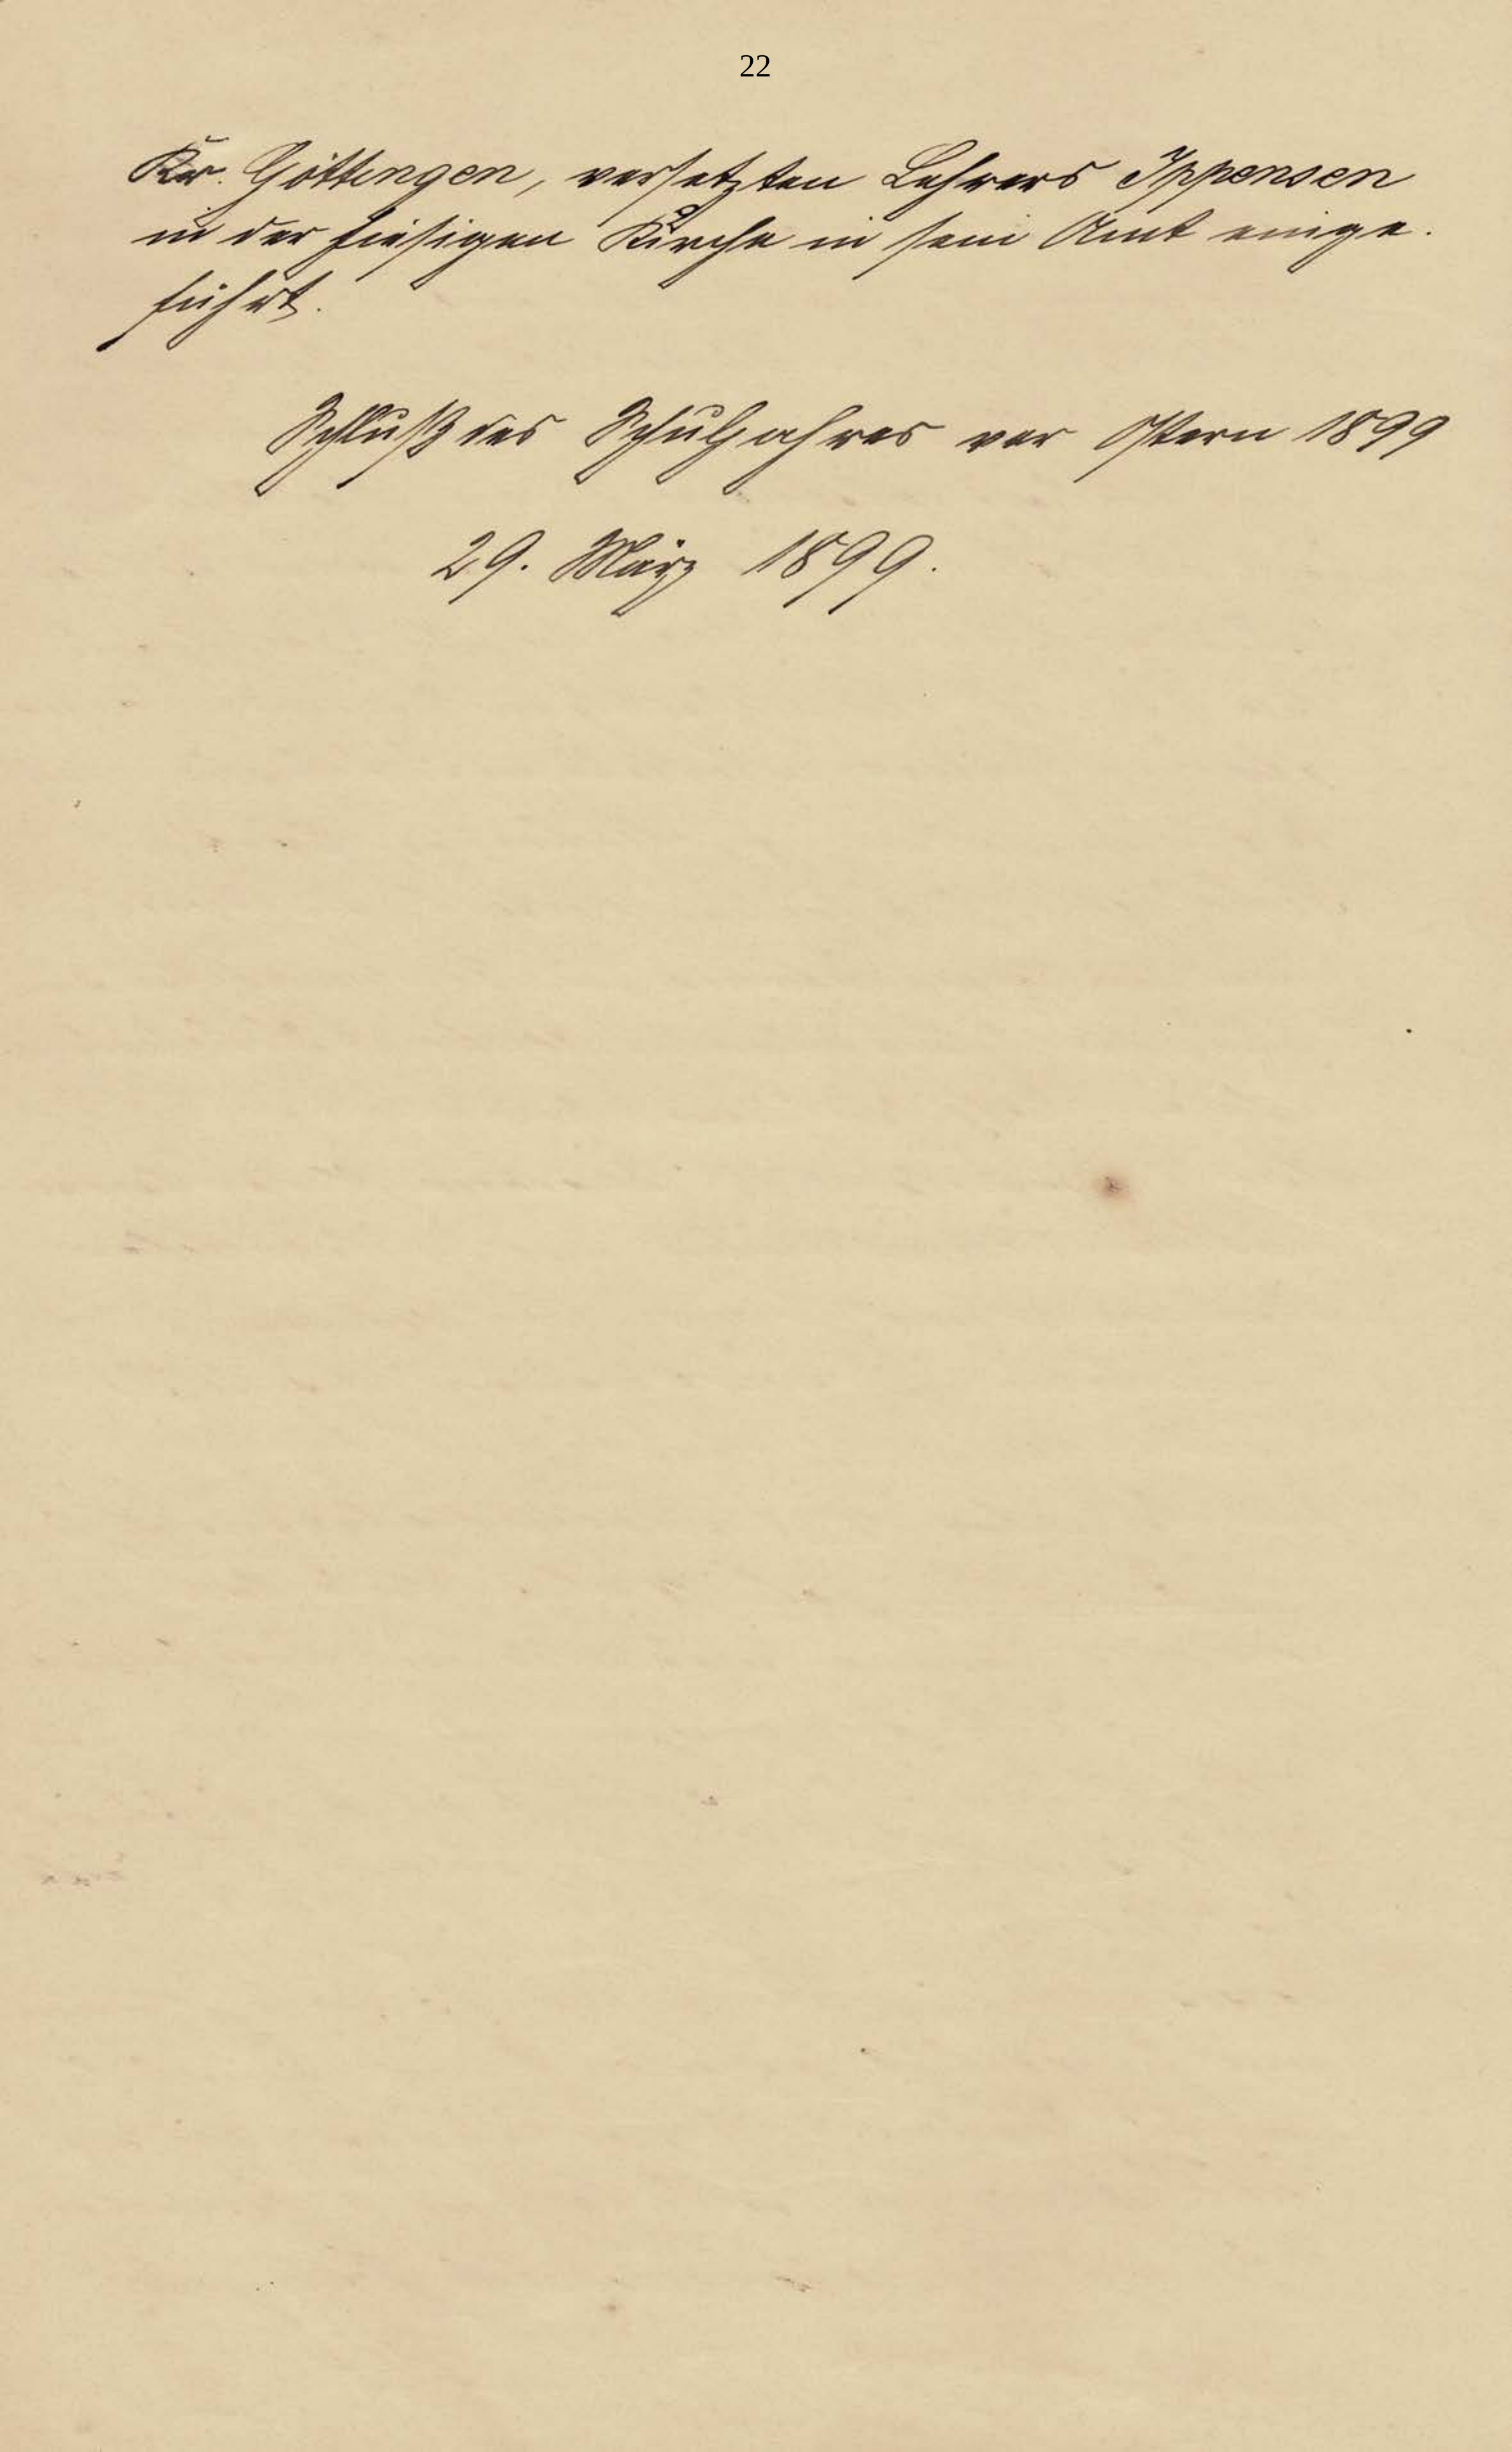 22
Kr. Göttingen, versetzten Lehrers Ippensen
in der hiesigen Kirche in sein Amt einge-
führt.
Schluß des Schuljahres vor Ostern 1899
29. März 1899.